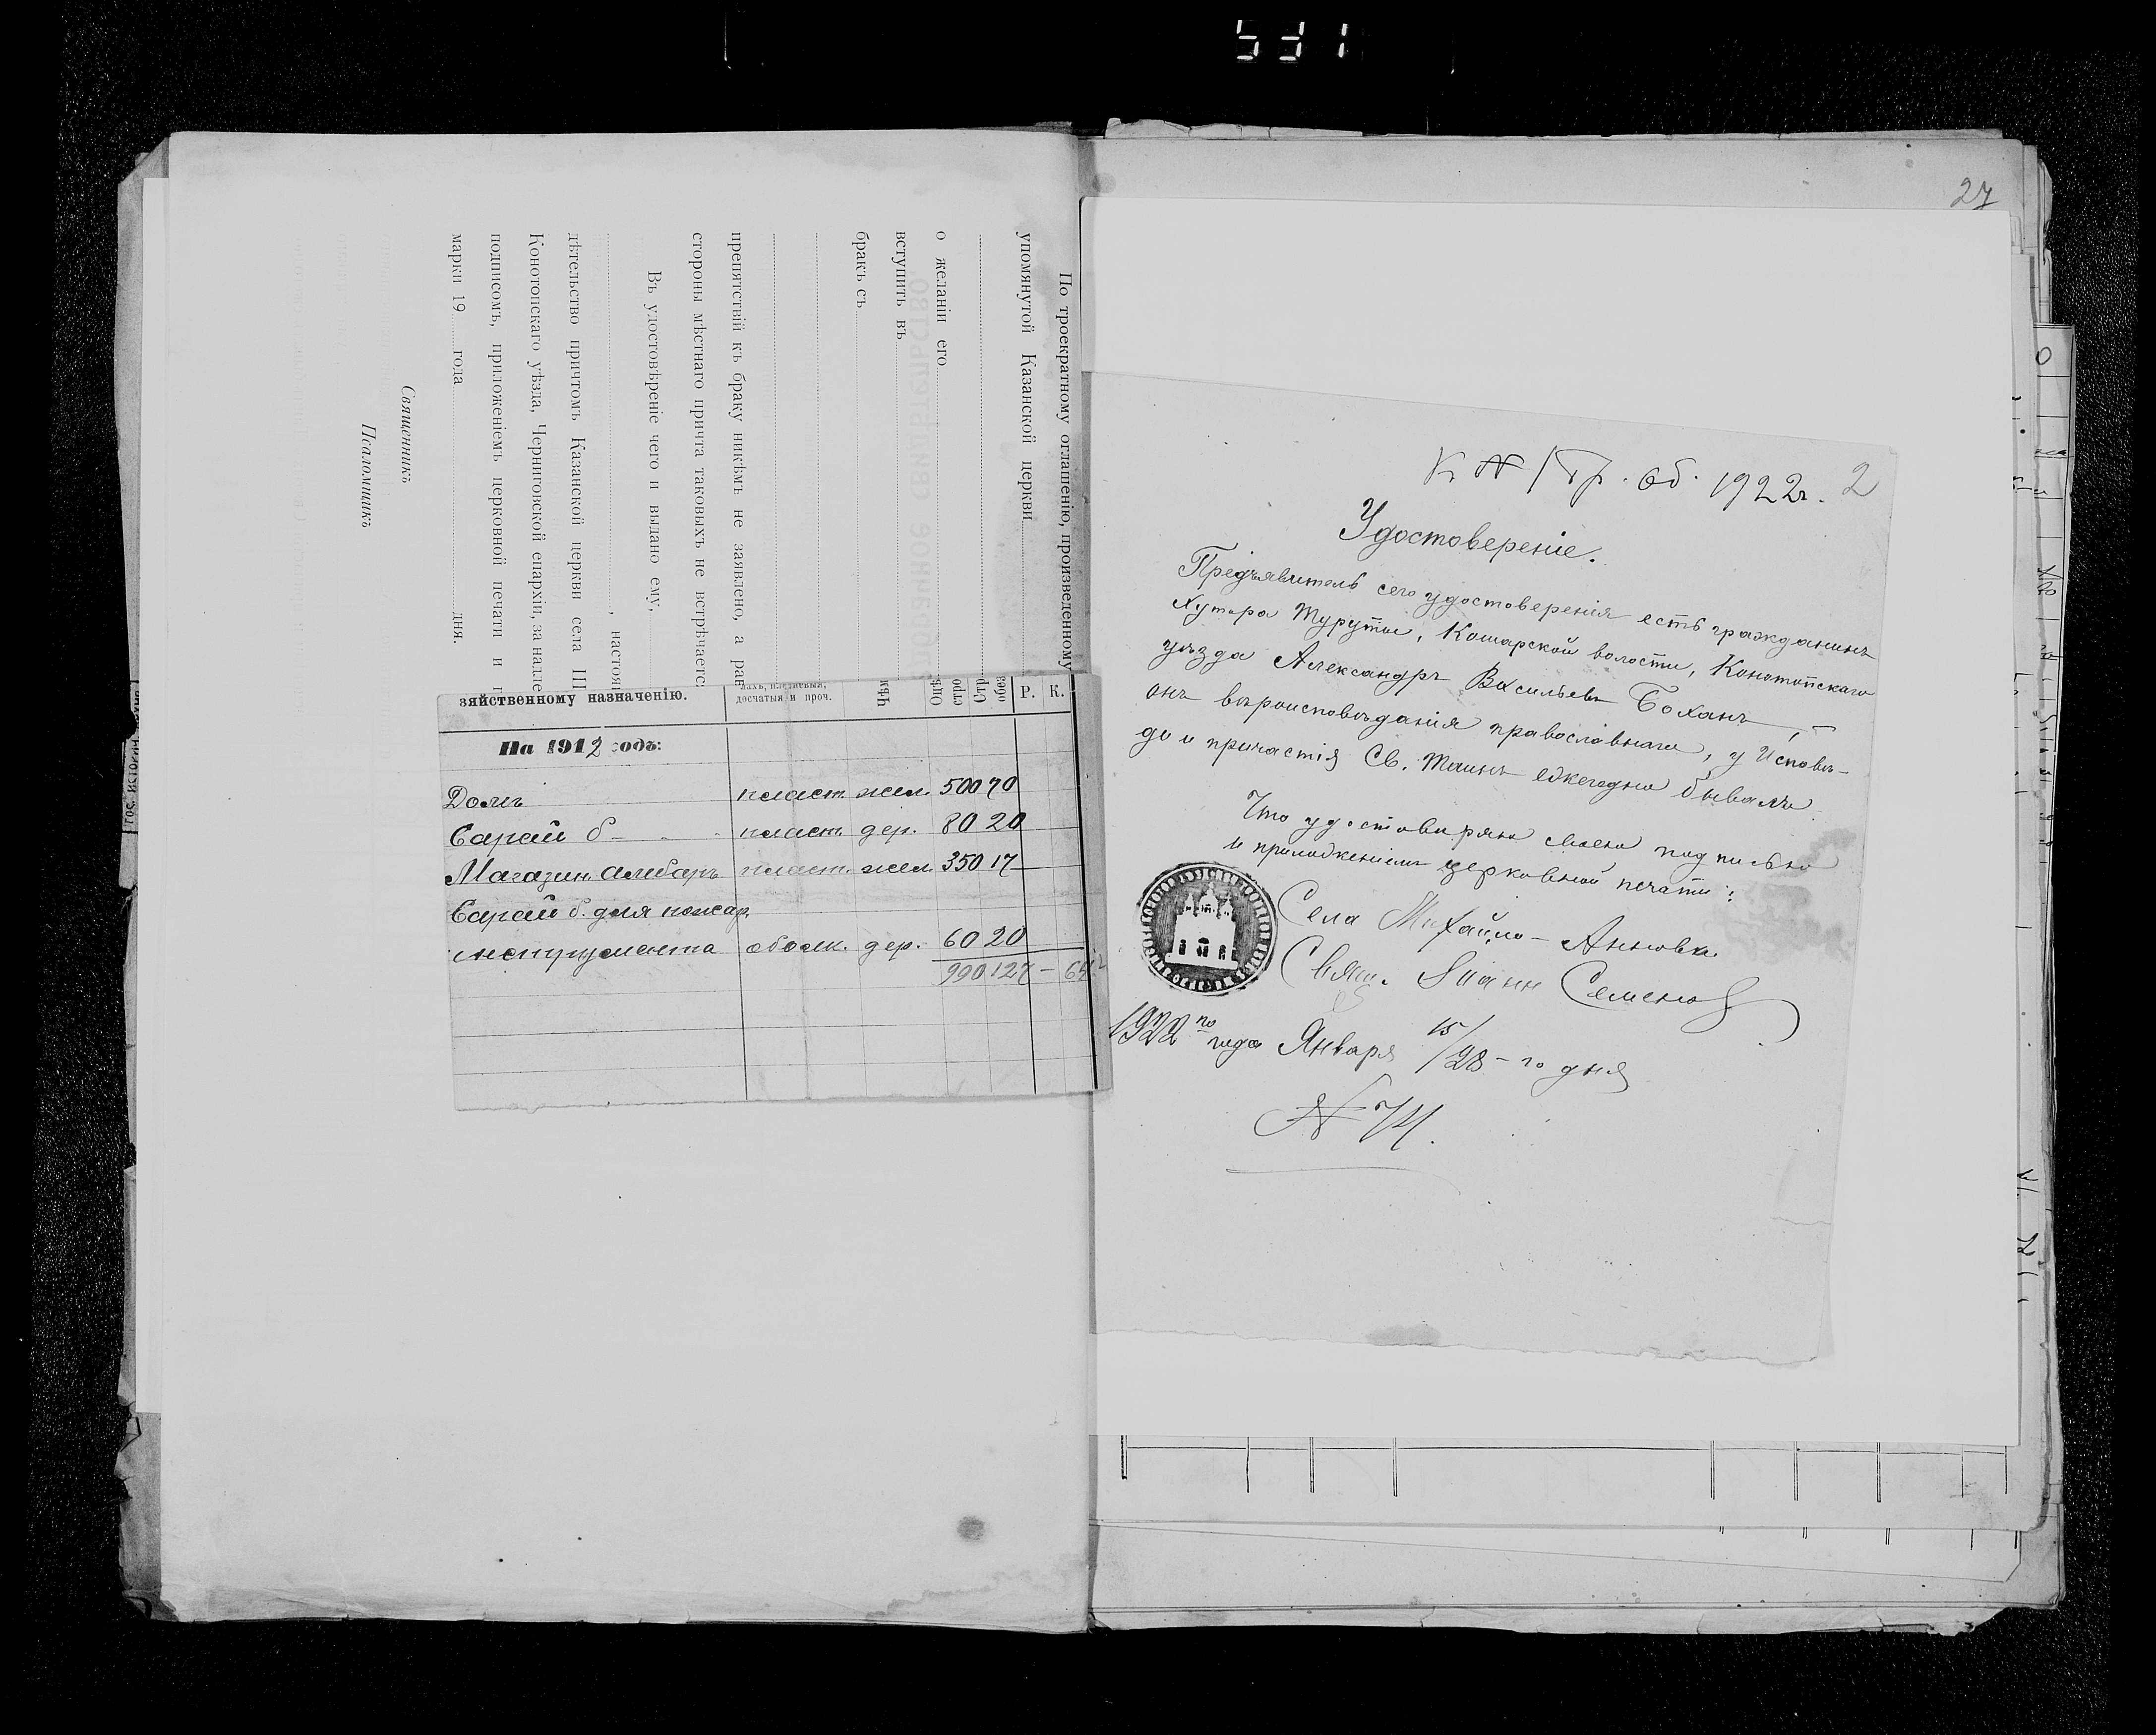 531
По троекратному оглашенію, произведенному
упомянутой Казанской церкви
о желаніи его
вступить въ
бракъ съ
препятствій къ браку никѣмъ не заявлено, а рав
стороны мѣстнаго причта таковыхъ не встрѣчаетс
Въ удостовѣреніе чего и выдано ему,
, настоя
дѣтельство причтомъ Казанской церкви села Ш
Конотопскаго уѣзда, Черниговской епархіи, за надле
подписомъ, приложеніемъ церковной печати и г
марки 19 года дня.
Священникъ
Псаломщикъ
зяйственному назначенію.
досчатыя и проч.
Р. К.
На 1912 годъ:
Домъ пласт. жел. 500 70
Сарай б пласт. дер. 80 20
Магазин амбаръ пласт. жел. 350 17
Сарай б. для пожар.
инструмента облок. дер. 60 20
990 127 -
27
К № 1 бр. об. 1922 г. 2
Удостоверенiе.
Предъявитель сего удостоверенія есть гражданинъ
Хутора Туруты, Кошарской волости, Конотопскаго
уѣзда Александръ Васильевъ Боханъ,
онъ вѣроисповѣданія православнаго, у Исповѣ-
ди и причастія Св. Таинъ ежегодно бывалъ.
Что удостоверяю своею подписью
и приложеніемъ церковной печати:
Села Михайло-Анновка
Свящ. Іоанн Семенов
1922 го года Января 15/28-го дня
№ 74.